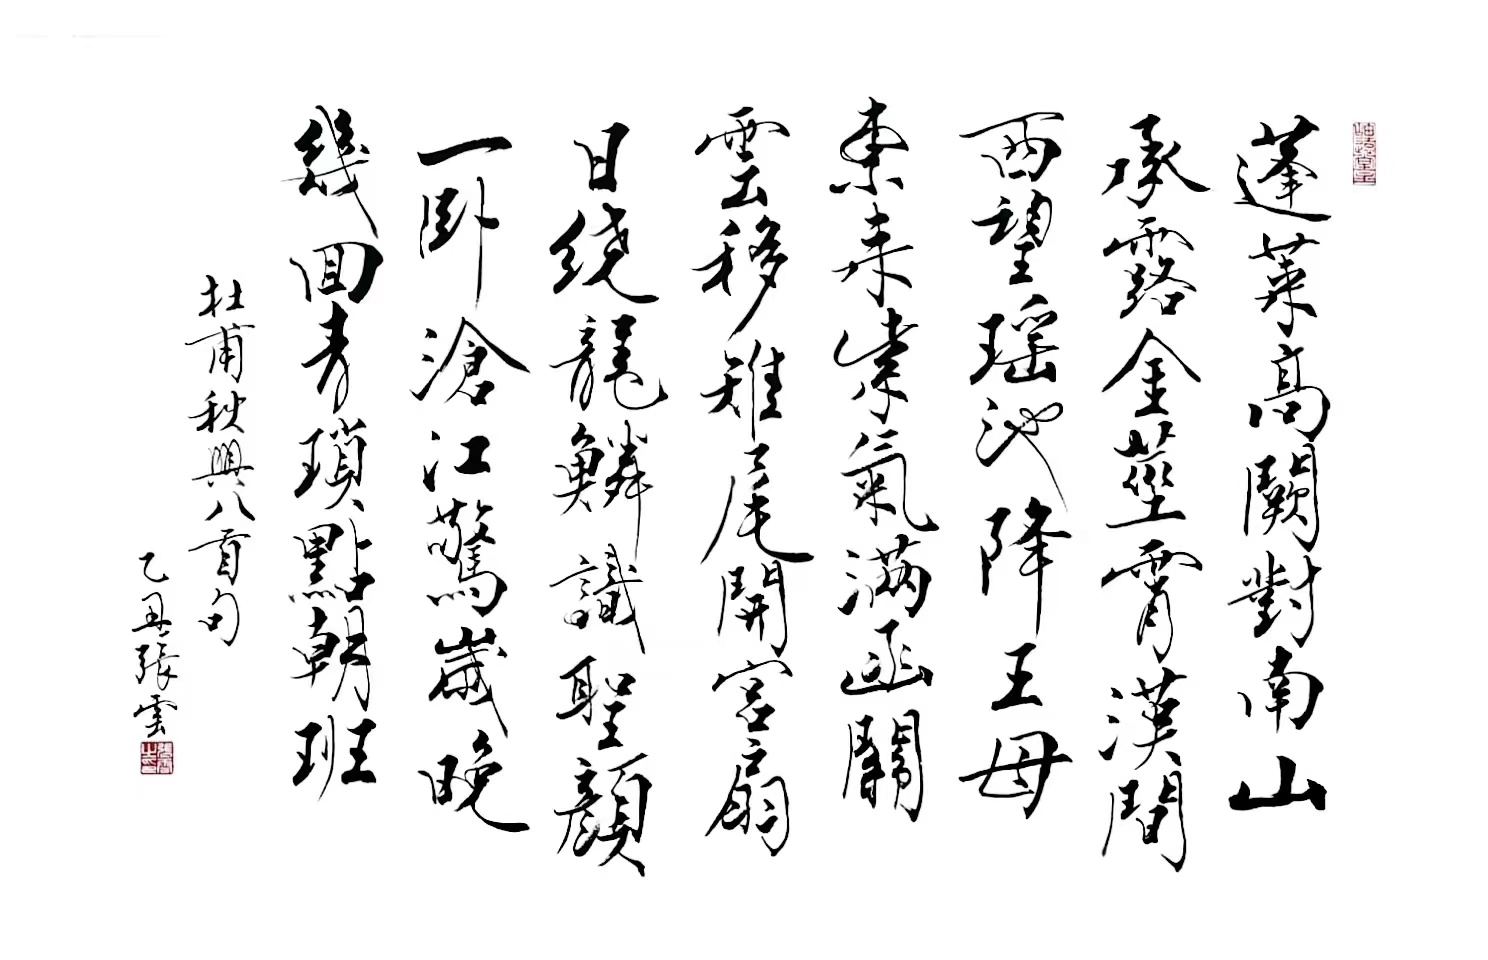 蓬莱高闕對南山
承露金莖霄漢間
西望瑶池降王母
東来紫氣滿函關
雲移雉尾開宮扇
日繞龍鱗識聖顏
一卧滄江驚歲晚
幾回青瑣點朝班
杜甫秋興八首句
乙丑張雲